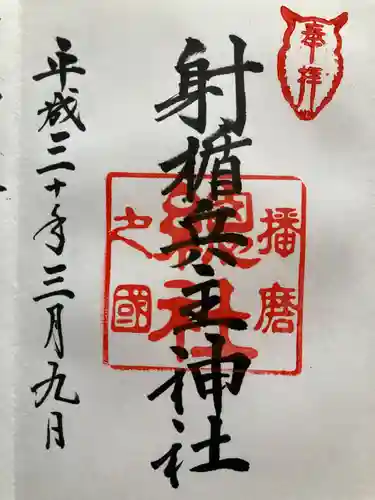 奉拝
播磨
總社
之國
射楯兵主神社
平成三十年三月九日